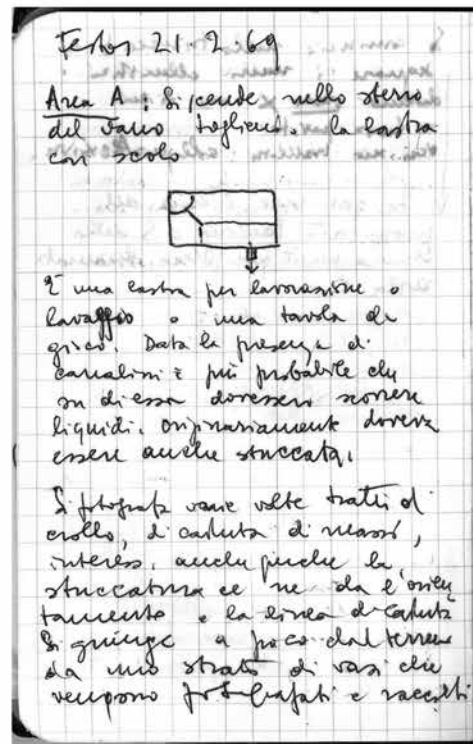 Festòs 21.2.69
Area A: Si scende nello sterro
del vano togliendo la lastra
con scolo
È una lastra per lavorazione o
lavaggio o una tavola da
gioco. Data la presenza di
canalini è più probabile che
su di essa dovessero scorrere
liquidi. Originariamente doveva
essere anche stuccata.
Si fotografa varie volte tratti di
crollo, di caduta di massi,
interess. anche perché la
stuccatura ce ne da l'orien
tamento e la linea di caduta
Si giunge a poco dal terreno
da uno strato di vasi che
vengono fotografati e raccolti